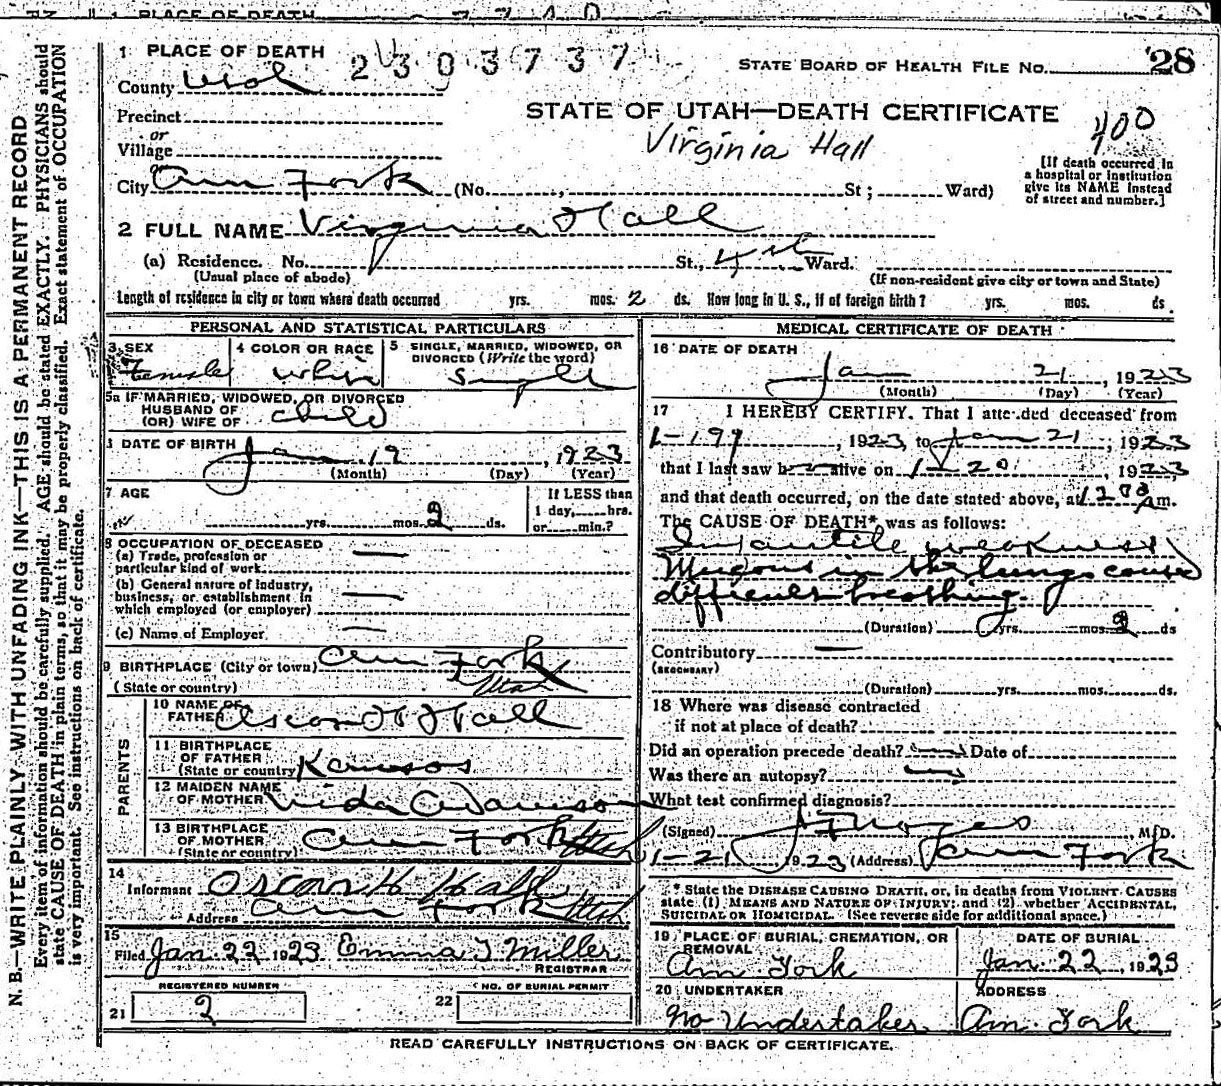 1 PLACE OF DEATH
2303737
STATE BOARD OF HEALTH FILE No. 28
County Utah
STATE OF UTAH—DEATH CERTIFICATE
Precinct
400
or
Village
Virginia Hall
[If death occurred in a hospital or institution give its NAME instead of street and number.]
City Am Fork (No. , St; Ward)
2 FULL NAME Virginia Hall
(a) Residence. No. St., 4th Ward.
(Usual place of abode) (If non-resident give city or town and State)
Length of residence in city or town where death occurred yrs. mos. 2 ds. How long in U. S., if of foreign birth? yrs. mos. ds.
PERSONAL AND STATISTICAL PARTICULARS
3 SEX Female
4 COLOR OR RACE White
5 SINGLE, MARRIED, WIDOWED, OR DIVORCED (Write the word) Single
5a IF MARRIED, WIDOWED, OR DIVORCED
HUSBAND OF
(OR) WIFE OF child
DATE OF BIRTH Jan. 19, 1923
(Month) (Day) (Year)
7 AGE yrs. mos. 2 ds.
If LESS than 1 day, hrs. or min.?
8 OCCUPATION OF DECEASED
(a) Trade, profession or particular kind of work
(b) General nature of industry, business, or establishment in which employed (or employer)
(c) Name of Employer
9 BIRTHPLACE (City or town) Am Fork
(State or country) Utah
PARENTS
10 NAME OF FATHER Oscar H Hall
11 BIRTHPLACE OF FATHER (State or country) Kansas
12 MAIDEN NAME OF MOTHER
13 BIRTHPLACE OF MOTHER (State or country) Am Fork Utah
14 Informant Oscar H Hall
Address Am Fork Utah
15 Filed Jan. 22 1923 Emma T Miller
REGISTRAR
REGISTERED NUMBER
21 2
22 NO. OF BURIAL PERMIT
MEDICAL CERTIFICATE OF DEATH
16 DATE OF DEATH
Jan 21, 1923
(Month) (Day) (Year)
17 I HEREBY CERTIFY, That I attended deceased from
1-19, 1923, to Jan 21, 1923
that I last saw h alive on 1-20, 1923
and that death occurred, on the date stated above, at am.
The CAUSE OF DEATH* was as follows:
Infantile weakness
Mucous in the lungs caused
difficult breathing.
(Duration) yrs. mos. 2 ds
Contributory
(SECONDARY)
(Duration) yrs. mos. ds.
18 Where was disease contracted
if not at place of death?
Did an operation precede death? Date of
Was there an autopsy?
What test confirmed diagnosis?
(Signed) J F Noyes, M.D.
1-21 1923 (Address) Am Fork
* State the DISEASE CAUSING DEATH, or, in deaths from VIOLENT CAUSES
state (1) MEANS AND NATURE OF INJURY; and (2) whether ACCIDENTAL,
SUICIDAL OR HOMICIDAL. (See reverse side for additional space.)
19 PLACE OF BURIAL, CREMATION, OR REMOVAL Am Fork
DATE OF BURIAL Jan. 22, 1923
20 UNDERTAKER No Undertaker
ADDRESS Am. Fork
READ CAREFULLY INSTRUCTIONS ON BACK OF CERTIFICATE.
N. B.—WRITE PLAINLY WITH UNFADING INK—THIS IS A PERMANENT RECORD
Every item of information should be carefully supplied. AGE should be stated EXACTLY. PHYSICIANS should
state CAUSE OF DEATH in plain terms, so that it may be properly classified. Exact statement of OCCUPATION
is very important. See instructions on back of certificate.